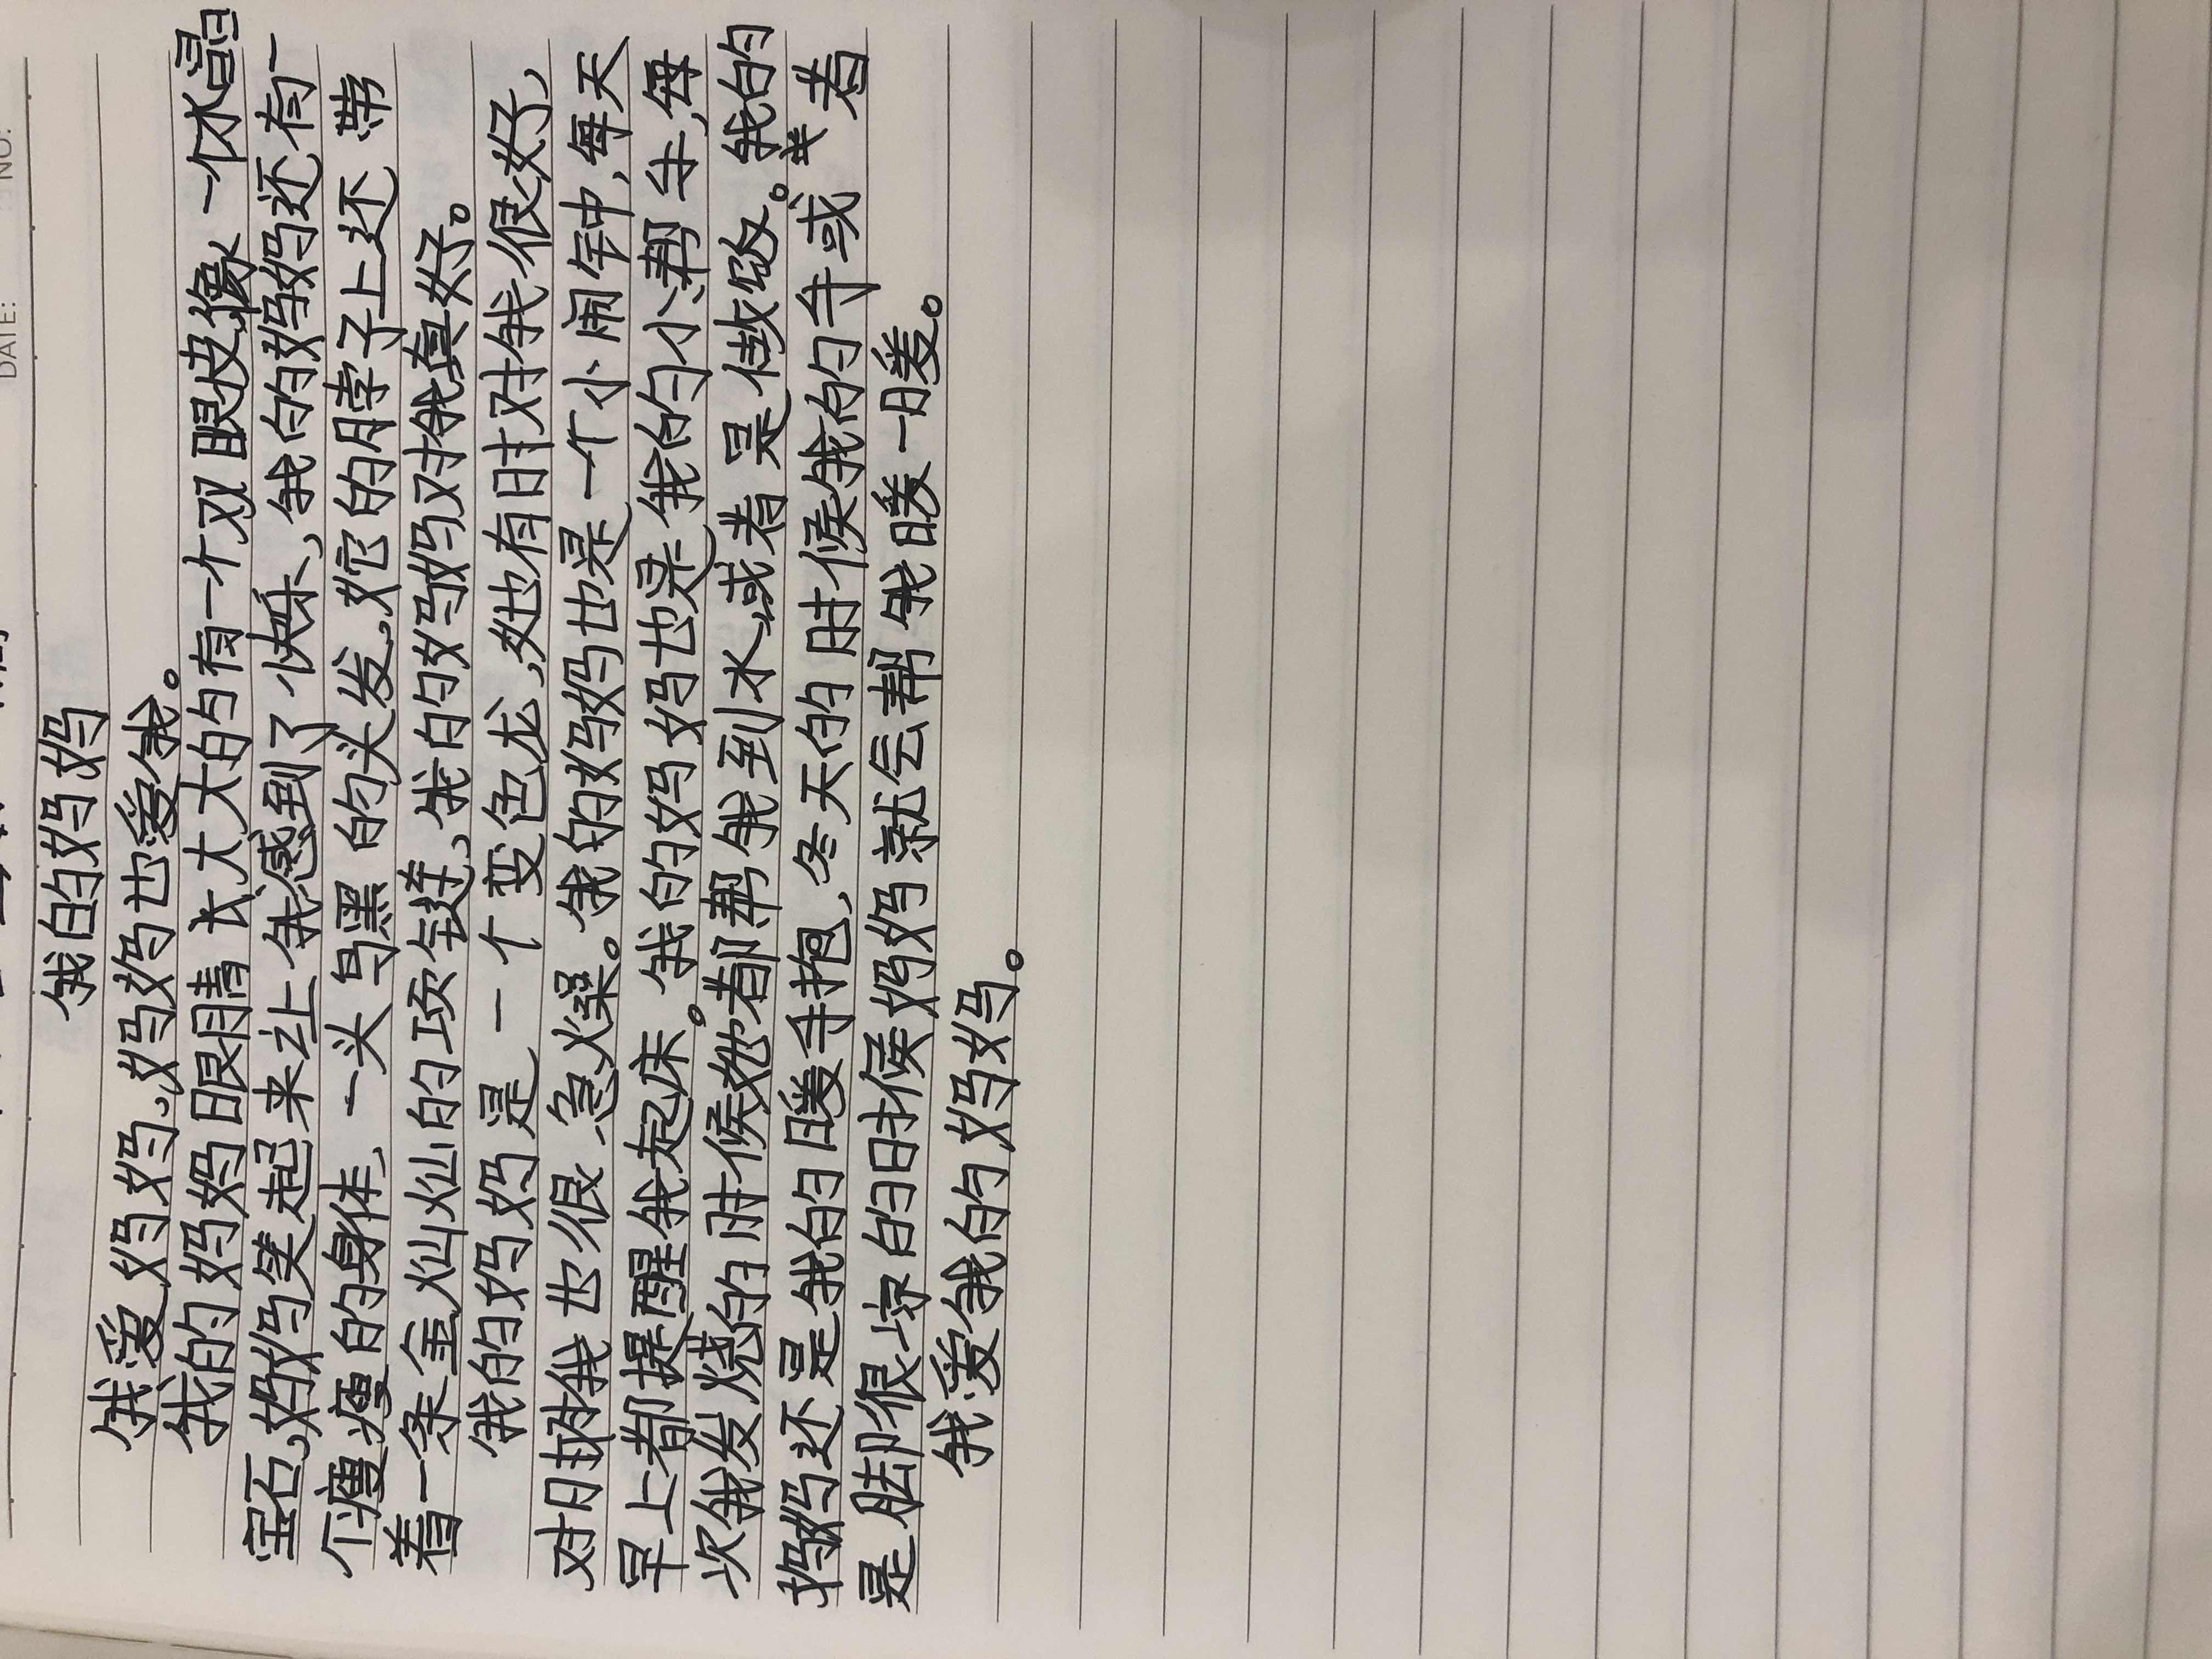 DATE:
NO.
我的妈妈
我爱妈妈,妈妈也爱我。
我的妈妈眼睛大大的有一个双眼皮像一个水晶
宝石,妈妈笑起来让我感到了快乐,我的妈妈还有一
个瘦瘦的身体,一头乌黑的头发,她的脖子上还带
着一条金灿灿的项链,我的妈妈对我真好。
我的妈妈是一个变色龙,她有时对我很好,
对我也很急燥。我的妈妈也是一个小闹钟,每天
早上都提醒我起床。我的妈妈也是我的小帮手,每
次我发烧的时候她都帮我到水或者是做饭。我的
妈妈还是我的暖手抱,冬天的时候我的手或者
是脚很冰的时候妈妈就会帮我暖一暖。
我爱我的妈妈。